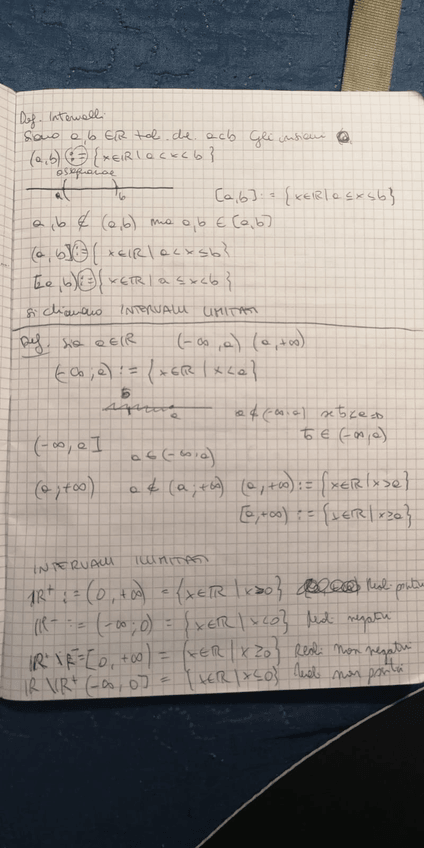 Def. Intervalli
Siano a, b ∈ ℝ tali che a<b Gli insiemi
(a, b) := { x∈ℝ | a<x<b }
a b
[a, b] := { x∈ℝ | a≤x≤b }
a, b ∉ (a, b) ma a, b ∈ [a, b]
(a, b] := { x∈ℝ | a<x≤b }
[a, b) := { x∈ℝ | a≤x<b }
si chiamano INTERVALLI LIMITATI
Def. Sia a∈ℝ (-∞, a) (a, +∞)
(-∞, a) := { x∈ℝ | x<a }
b
a
a ∉ (-∞, a) b<a ⇒
b ∈ (-∞, a)
(-∞, a] a ∈ (-∞, a)
(a; +∞) a ∉ (a; +∞) (a, +∞) := { x∈ℝ | x>a }
[a, +∞) := { x∈ℝ | x≥a }
INTERVALLI ILLIMITATI
ℝ⁺ := (0, +∞) = { x∈ℝ | x>0 } Reali positivi
ℝ⁻ := (-∞; 0) = { x∈ℝ | x<0 } Reali negativi
ℝ \ ℝ⁻ = [0, +∞) = { x∈ℝ | x≥0 } Reali non negativi
ℝ \ ℝ⁺ (-∞, 0] = { x∈ℝ | x≤0 } Reali non positivi